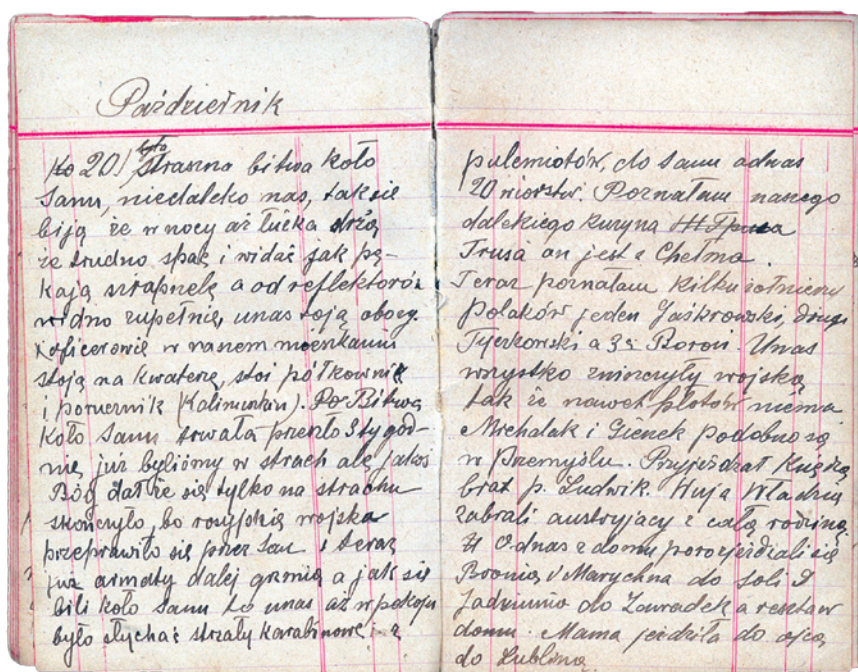 Październik
Ko 20 była straszna bitwa koło
Sanu, niedaleko nas, tak sie
biją że w nocy aż łucka drżą
że trudno spać i widać jak pę-
kają szrapnele a od reflektorów
widno zupełnie, unas stoją obozy
i oficerowie w naszem mieszkaniu
stoją na kwaterze, stoi półkownik
i porucznik (Kalinuszkin). Po Bitwa
koło Sanu trwała przeszło 3 tygod-
nie już byliśmy w strach ale jakoś
Bóg dał że się tylko na strachu
skończyło, bo rosyjskie wojska
przeprawiło się przez San i teraz
już armaty dalej grzmią a jak się
bili koło Sanu to unas aż w pokoju
było słychać strzały karabinowe i z
pulemiotów, do Sanu odnas
20 wiorstw. Poznałam naszego
dalekiego kuzyna
Trusa on jest z Chełma.
Teraz poznałam kilku żołnierzy
Polaków jeden Jaśkrowski, drugi
a 3ci Borow. Unas
wszystko zniszczyły wojska
tak że nawet płotów niema.
Michalak i Gienek podobno są
w Przemyślu. Przyjeżdżał Księdza
brat p. Ludwik. Wuja Władzia
zabrali austryjacy z całą rodziną.
Odnas z domu porozjeżdżali się
Bronia i Marychna do Soli
Jadziunia do Zawadek a reszta w
domu. Mama jeździła do ojca
do Lublina.